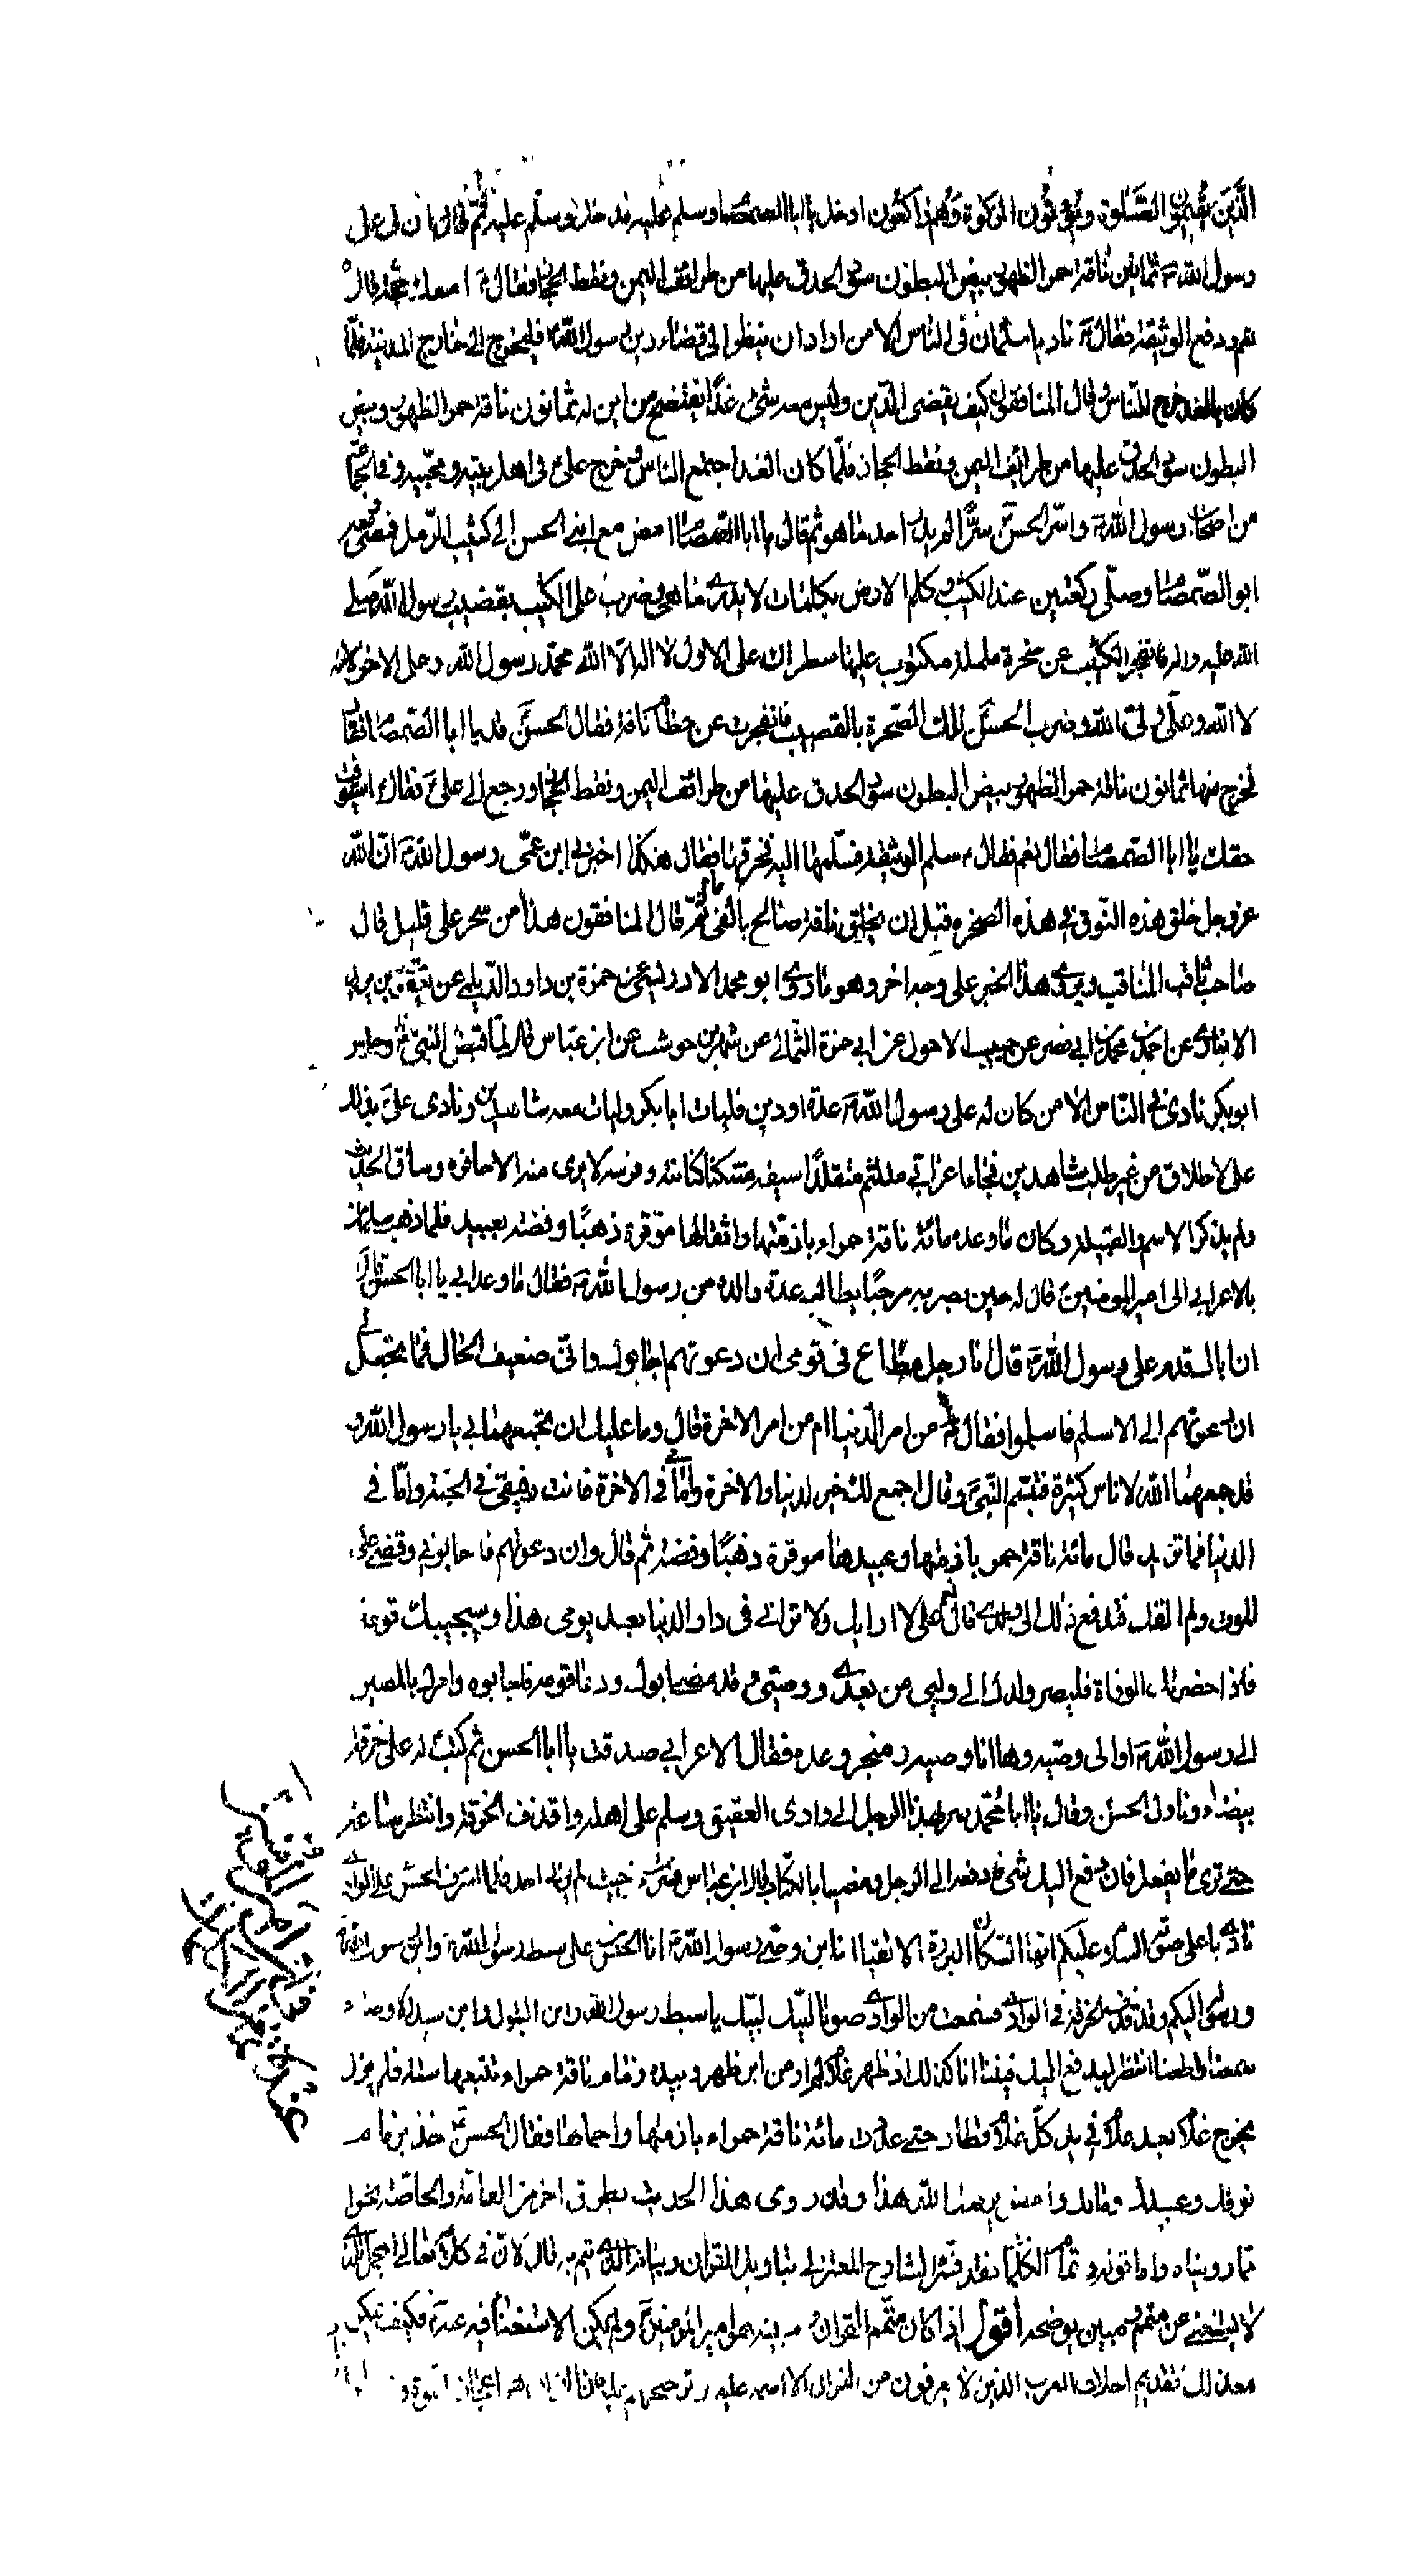 الَّذين يقيمون الصَّلوة ويؤتون الزكوة وهم راكعون ادخل يا ابا الصمصام وسلم عليه فدخل وسلم عليه ثم قال ان لى على
رسول اللّه ثمانين ناقة حمر الظهور بيض البطون سود الحدق عليها من طرائف اليمن ونقط الحجاز فقال امعك حجة قال
نعم ودفع الوثيقة فقال ناد يا سلمان فى الناس الا من اراد ان ينظر الى قضاء دين رسول اللّه فليخرج الى خارج المدينة فلمّا
كان بالغد خرج الناس وقال المنافقون كيف يقضى الدّين وليس معه شئ غدًا يفتضح من اين له ثمانون ناقة حمر الظهور وبيض
البطون سود الحدق عليها من طرائف اليمن ونقط الحجاز فلمّا كان الغد اجتمع الناس وخرج علىّ فى اهله ومحبّيه وفى الجماعة
من اصحاب رسول اللّه واسرّ الحسن سرًّا لم يدر احد ما هو ثم قال يا ابا الصمصام امض مع ابنى الحسن الى كثيب الرّمل فمضى ومعه
ابو الصّمصام وصلّى ركعتين عند الكثيب وكلم الارض بكلمات لا يدرى ما هى وضرب على الكثيب بقضيب رسول اللّه صلى
اللّه عليه واله فانفجر الكثيب عن صخرة ململمة مكتوب عليها سطران على الاول لا اله الّا اللّه محمّد رسول اللّه وعلى الاخر لا اله
الا اللّه وعلّى ولىّ اللّه وضرب الحسن تلك الصّخرة بالقضيب فانفجرت عن خطام ناقة فقال الحسن قد يا ابا الصّمصام فقاد
فخرج منها ثمانون ناقة حمر الظهور بيض البطون سود الحدق عليها من طرائف اليمن ونقط الحجاز ورجع الى علىّ فقال استوفيت
حقك يا ابا الصّمصام فقال نعم فقال سلم الوثيقة فسلّمها اليه فخرقها فقال هكذا اخبرنى ابن عمّى رسول اللّه انّ اللّه
عز وجل خلق هذه النّوق فى هذه الصخرة قبل ان يخلق ناقة صالح بالفى عام ثمّ قال المنافقون هذا من سحر على قليل قال
صاحب ثاقب المناقب ويروى هذا الخبر على وجه اخر وهو ما روى ابو محمد الادريسى عن حمزة بن داود الدّيلمى عن يعقوب بن يزيد
الانبارى عن احمد بن محمد بن ابى نصر عن حبيب الاحول عن ابى حمزة الثّمالى عن شهر بن حوشب عن ابن عبّاس قال لمّا قبض النبىّ وجلس
ابو بكر نادى فى النّاس الا من كان له على رسول اللّه عدة او دين فليات ابا بكر وليات معه شاهدين ونادى علىّ بذلك
على الاطلاق من غير طلب شاهدين فجاء اعرابى متلثم متقلّدًا سيفه متنكّبا كنانته وفرسه لا يرى منه الا حافره وساق الحديث
ولم يذكر الاسم والقبيلة وكان ما وعده مائة ناقة حمراء بازمّتها واثقالها موقرة ذهبًا وفضّة بعبيد فلما ذهب سلمان
بالاعرابى الى امير المومنين قال له حين بصر به مرحبًا بطالب عدة والده من رسول اللّه فقال ما وعد ابى يا ابا الحسن قال
ان اباك قدم على رسول اللّه قال انا رجل مطاع فى قومى ان دعوتهم اجابوك وانّى ضعيف الحال فما تجعل لى
ان دعوتهم الى الاسلم فاسلموا فقال من امر الدّنيا ام من امر الاخرة قال وما عليك ان تجمعهما لى يا رسول اللّه
قد جمعهما اللّه لاناس كثيرة فتبسّم النّبىّ وقال اجمع لك خير الدنيا والاخرة امّا فى الاخرة فانت رفيقى فى الجنة وامّا فى
الدنيا فما تريد قال مائة ناقة حمر بازمّتها وعبيدها موقرة ذهبًا وفضة ثم قال وان دعوتهم فاجابونى وقضى علىّ
الموت ولم القك فتدفع ذلك الى ولدى قال نعم على لا اراك ولا ترانى فى دار الدنيا بعد يومى هذا وسيجيبك قومك
فاذا حضرتك الوفاة فليصر ولدك الى وليى من بعدى ووصيّى وقد مضى ابوك ودعا قومه فاجابوه وامرك بالمصير
الى رسول اللّه او الى وصيّه وها انا وصيه ومنجز وعده فقال الاعرابى صدقت يا ابا الحسن ثم كتب له على خرقة
بيضاء وناول الحسن وقال يا ابا محمّد سر بهذا الرجل الى وادى العقيق وسلم على اهله واقذف الخرقة وانتظر ساعة
حتى ترى ما يفعل فان دفع اليك شئ فادفعه الى الرجل ومضيا بالكتاب قال ابن عبّاس فسرت حيث لم يرنى احد فلما اشرف الحسن على الوادى
نادى باعلى صوته السلام عليكم ايّها السكان البررة الاتقياء انا ابن وصىّ رسول اللّه انا الحسن بن على سبط رسول اللّه وابن رسول اللّه
ورسوله اليكم وقد قذف الخرقة فى الوادى فسمعت من الوادى صوتا لبيك لبيك يا سبط رسول اللّه وابن البتول وابن سيد الاوصياء
سمعنا واطعنا انتظر ليدفع اليك فبينا انا كذلك اذ ظهر غلام لم ادر من اين ظهر وبيده زمام ناقة حمراء تتبعها ستة فلم يزل
يخرج غلام بعد غلام فى يد كلّ غلام قطار حتى عددت مائة ناقة حمراء بازمتها واحمالها فقال الحسن خذ بزمام
نوقك وعبيدك ومالك وامض يرحمك اللّه هذا وقد روى هذا الحديث بطرق اخر من العامّة والخاصّة بنحو
ممّا رويناه واما قوله وتمام الكلمات فقد فسّر الشارح المعتزلى بتاويل القرآن وبيانه الذى يتم به قال لان فى كلامه تعالى المجمل الذى
لا يستغنى عن متمم ومبين يوضحه اقول اذا كان متمّم القرآن ومبينه هو امير المؤمنين ولم يكن الاستغناء فيه عنه فكيف يمكن
مع ذلك تقديم اجلاف العرب الذين لا يعرفون من القرآن الا اسمه عليه وترجيحهم